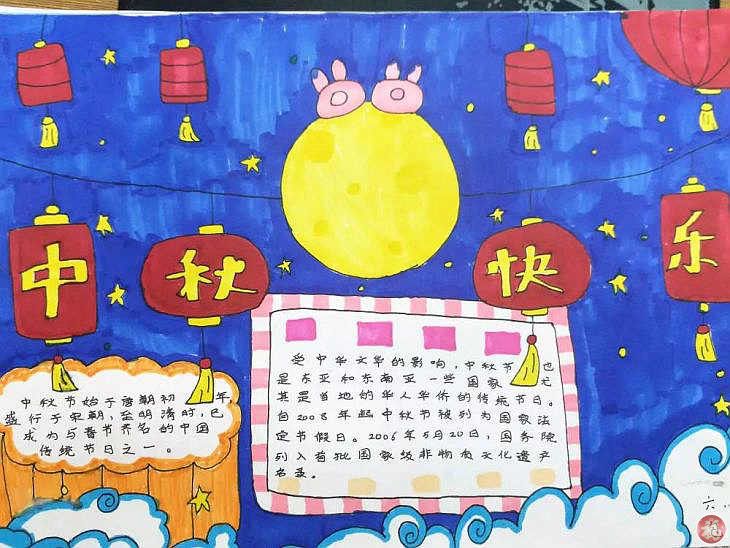 中秋快乐
中秋节始于唐朝初年,
盛行于宋朝,至明清时,已
成为与春节齐名的中国
传统节日之一。
受中华文华的影响,中秋节也
是东亚和东南亚一些国家尤
其是当地的华人华侨的传统节日。
自2008年起中秋节被列为国家法
定节假日。2006年5月20日,国务院
列入首批国家级非物质文化遗产
名录。
六
福